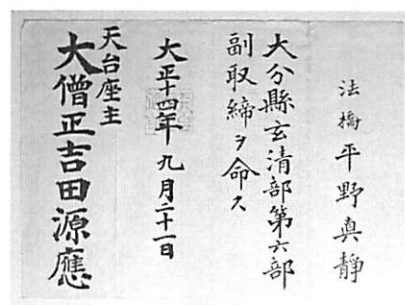 法橋 平野真静
大分縣玄清部第六部
副取締ヲ命ス
大正十四年九月二十一日
天台座主
大僧正吉田源應